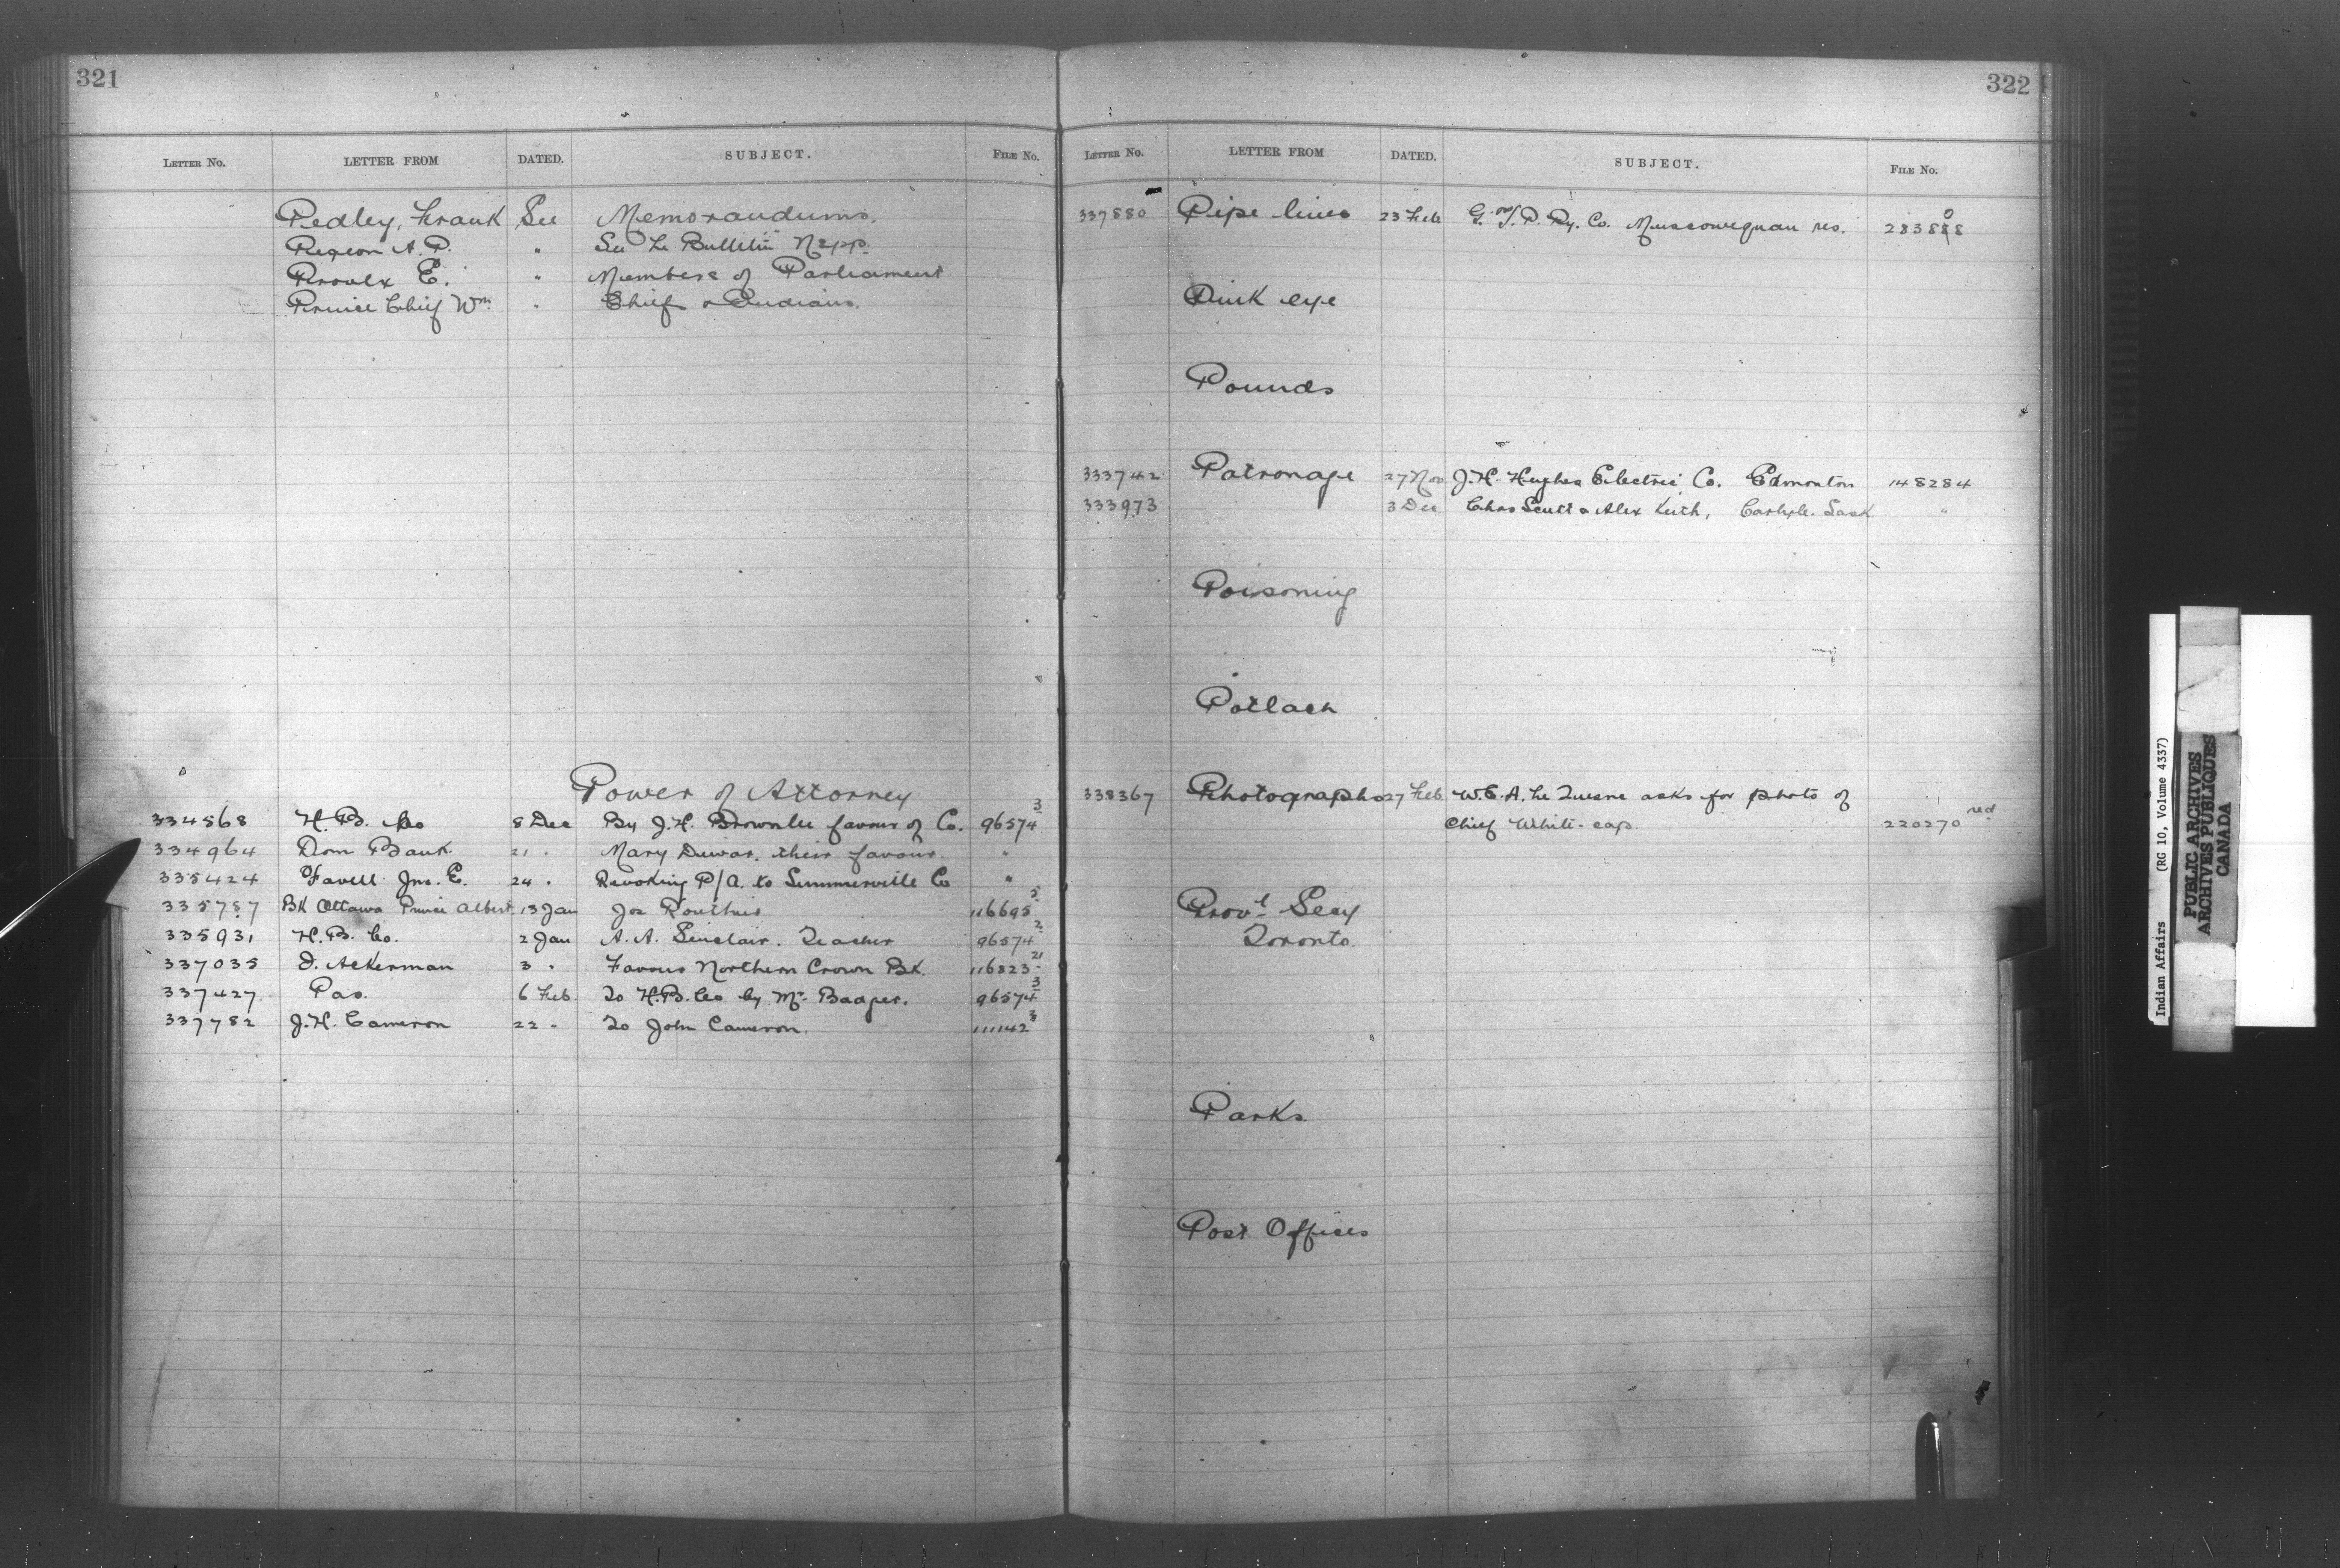 321
LETTER No. LETTER FROM DATED. SUBJECT. FILE No.
Pedley, Frank See Memorandums.
A. P. " See Le Bulletin
Proulx E. " Members of Parliament
Prince Chief Wm " Chiefs & Indians
Power of Attorney
334568 H. B. Co 8 Dec By J. H. Brownlee favour of Co. 96574 3
334964 Dom Bank 21 " Mary Dewar, their favour. "
335424 Favell Jno. E. 24 " Revoking P/A. to Summerville Co "
335787 Bk Ottawa Prince Albert 13 Jan Jos Routhier 116695
335931 H. B. Co. 2 Jan A. A. Sinclair. Teacher 96574 2
337035 D. Ackerman 3 " Favour Northern Crown Bk. 116823 21
337427 Pas. 6 Feb. To H. B. Co by Mr. 96574 3
337782 J. H. Cameron 22 " To John Cameron. 111142
322
LETTER No. LETTER FROM DATED. SUBJECT. FILE No.
337880 Pipe lines 23 Feb G. T. P. Ry. Co. Muscowequan res.
Pink eye
Pounds
333742 Patronage 27 Nov J. H. Hughes Electric Co. Edmonton 148284
333973 3 Dec Chas Scutt & Alex Keith, Carlyle. Sask "
Poisoning
Potlach
338367 Photographs 27 Feb W. E. A. asks for photo of
Chief White-cap. 220270 red
Provl Secy
Toronto.
Parks
Post Offices
Indian Affairs (RG 10, Volume 4337)
PUBLIC ARCHIVES
ARCHIVES PUBLIQUES
CANADA